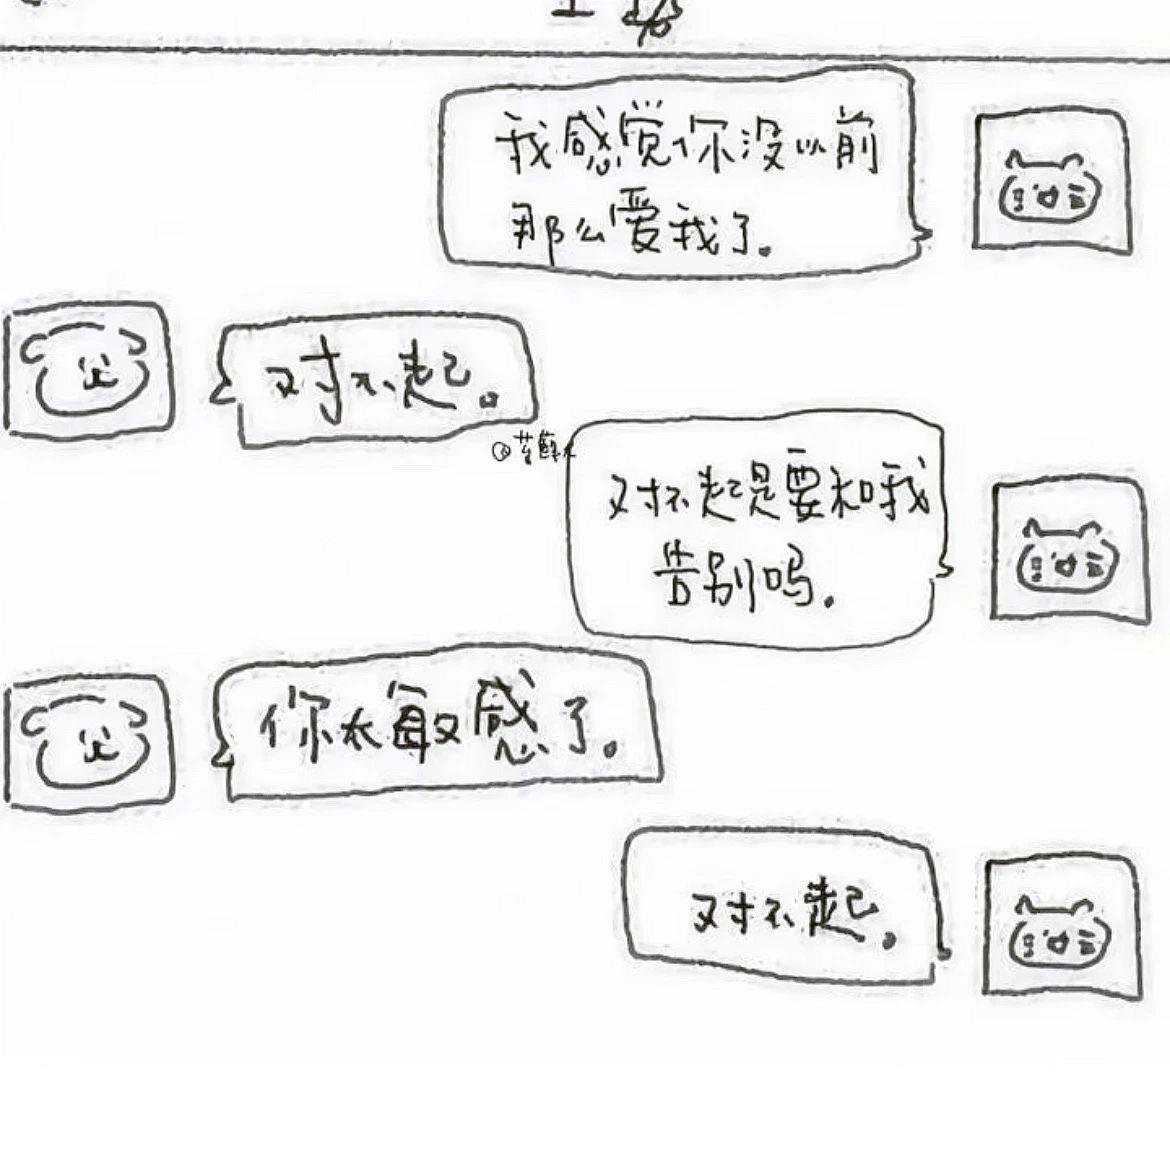 我感觉你没以前
那么爱我了。
对不起。
对不起是要和我
告别吗.
你太敏感了。
对不起。